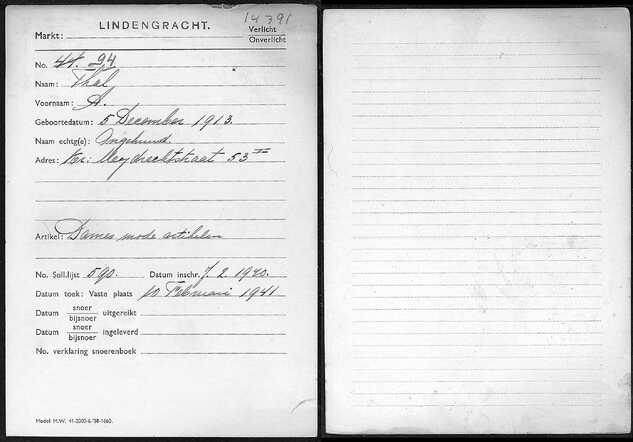 14391
LINDENGRACHT.
Markt:
Verlicht
Onverlicht
No. 44. 94
Naam: Thal
Voornaam: A.
Geboortedatum: 5 December 1913.
Naam echtg(e): Ongehuwd.
Adres: Kr: Meydrechtstraat 53 II
Artikel: Dames mode artikelen
No. Soll.lijst 590. Datum inschr. 7.2.1940.
Datum toek: Vaste plaats 10 Februari 1941
Datum snoer bijsnoer uitgereikt
Datum snoer bijsnoer ingeleverd
No. verklaring snoerenboek
Model M.W. 41-2000-6-'38-1660.